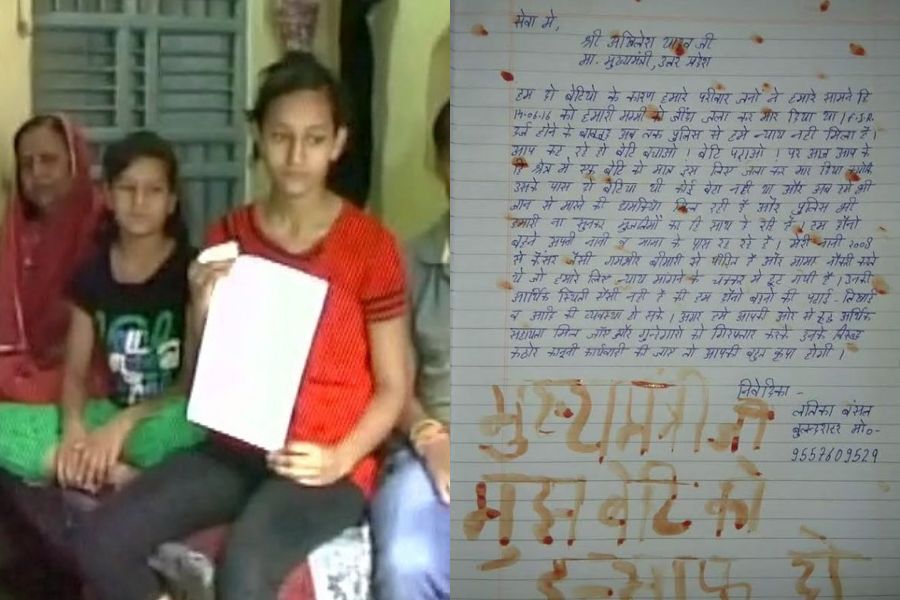 सेवा मे,
श्री अखिलेश यादव जी
मा. मुख्यमंत्री, उत्तर प्रदेश
हम दो बेटियो के कारण हमारे परीवार जनों ने हमारे सामने हि
14-06-16 को हमारी मम्मी को जींदा जला कर मार दिया था। F.I.R.
दर्ज होने के बावजूद अब तक पुलिस से हमे न्याय नही मिला है।
आप कह रहे हो बेटि बचाओ। बेटि पढाओ। पर आज आप के
हि क्षेत्र में एक बेटि को मात्र इस लिए जला कर मार दिया क्योंकि
उसके पास दो बेटिया थी कोई बेटा नही था और अब हमे भी
जान से मारने की धमकिया मिल रही है और पुलिस भी
हमारी ना सुनकर मुलजीमो का हि साथ दे रही है। हम दोनों
बहने अपनी नानी व मामा के पास रह रहे है। मेरी नानी 2008
से कैंसर जैसी गम्भीर बीमारी से पीडित है और मामा नौकरी करते
थे जो हमारे लिए न्याय मांगने के चक्कर मे छूट गयी है। उनकी
आर्थिक स्थिती ऐसी नही है की हम दोनो बहनो की पढाई-लिखाई
व आदि की व्यवस्था मे सके। अगर हमे आपकी ओर से कुछ आर्थिक
सहायता मिल जाए और गुनेहगारो को गिरफ्तार करके उनके विरूद्ध
कठोर कानूनी कार्यवाही की जाए तो आपकी बहुत कृपा होगी।
निवेदिका -
लतिका बंसल
बुलन्दशहर मो०-
9557609529
मुख्यमंत्री जी
मुझ बेटि को
इन्साफ दो